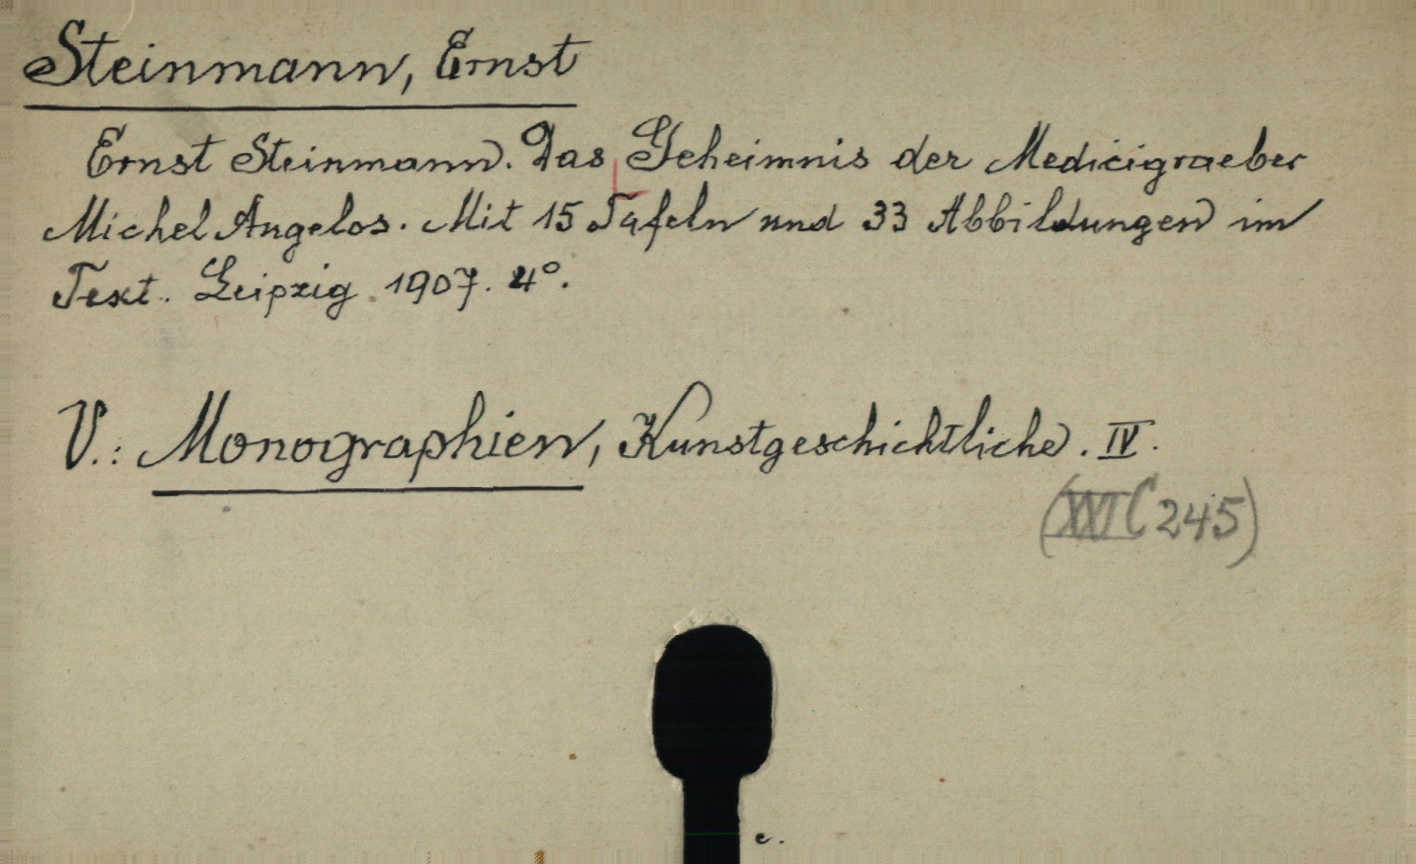 Steinmann, Ernst
Ernst Steinmann. Das Geheimnis der Medicigraeber
Michel Angelos. Mit 15 Tafeln und 33 Abbildungen im
Text. Leipzig 1907. 4°.
V.: Monographien, Kunstgeschichtliche. IV.
(XVI C 245)
c.